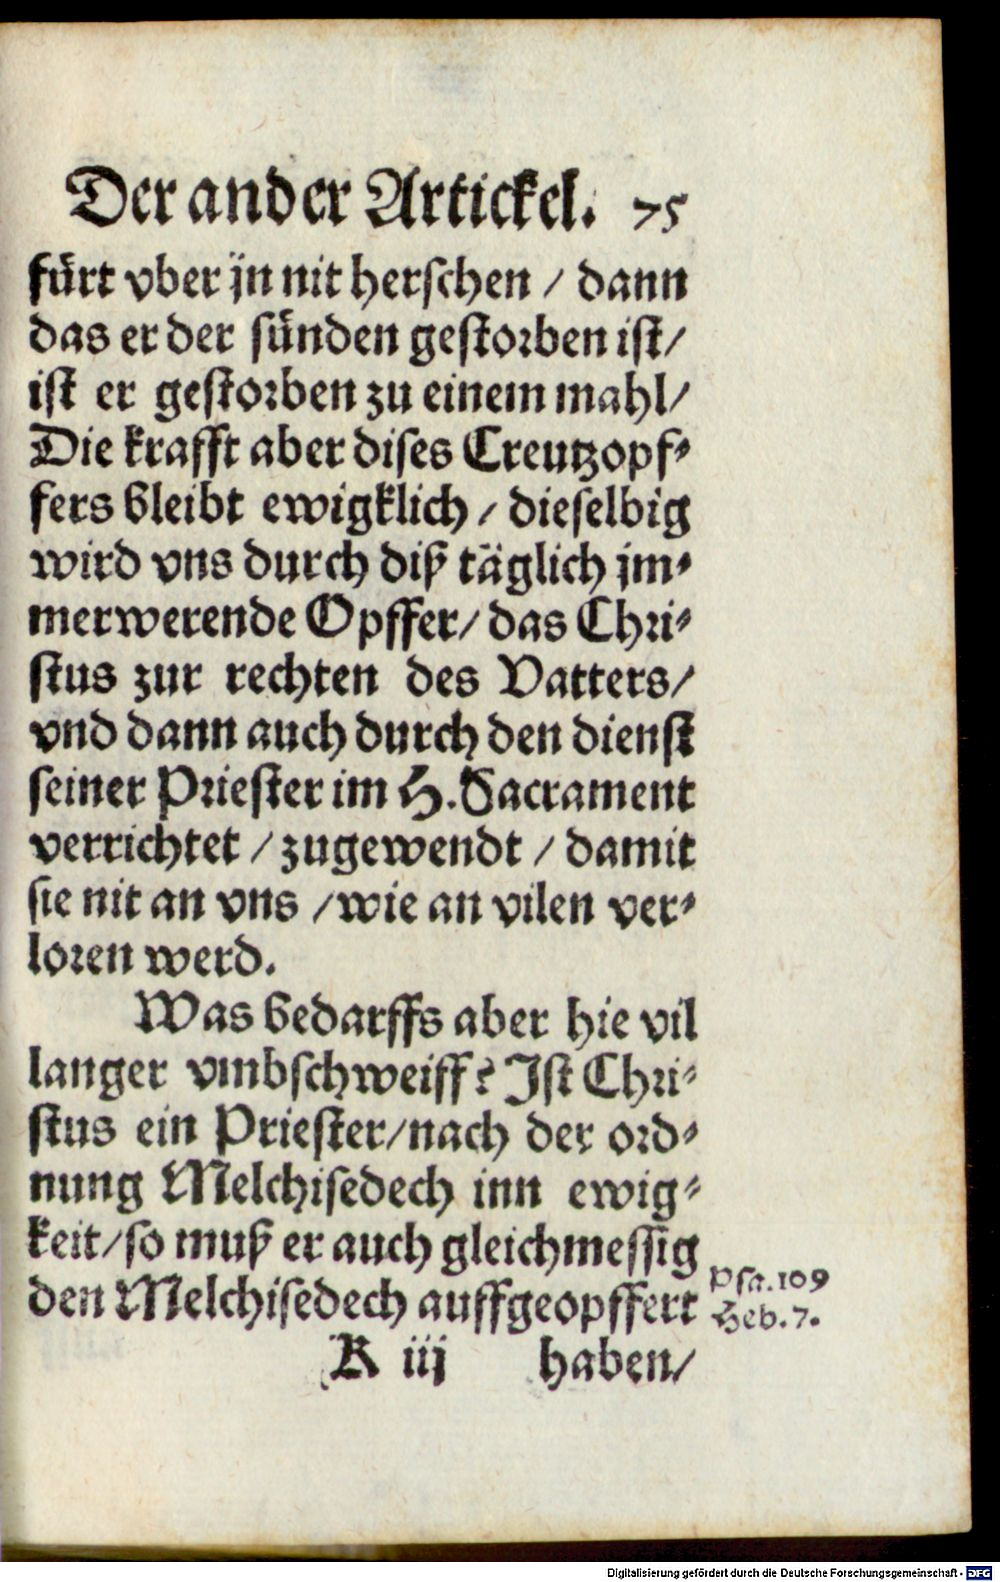 Der ander Artickel. 75
fürt vber jn nit herschen / dann
das er der sünden gestorben ist/
ist er gestorben zu einem mahl/
Die krafft aber dises Creutzopf-
fers bleibt ewigklich / dieselbig
wird vns durch diß täglich jm-
merwerende Opffer/ das Chri-
stus zur rechten des Vatters/
vnd dann auch durch den dienst
seiner Priester im H. Sacrament
verrichtet / zugewendt / damit
sie nit an vns / wie an vilen ver-
loren werd.
Was bedarffs aber hie vil
langer vmbschweiff? Ist Chri-
stus ein Priester/nach der ord-
nung Melchisedech inn ewig-
keit/so muß er auch gleichmessig
den Melchisedech auffgeopffert
Psa. 109
Heb. 7.
K iij haben/
Digitalisierung gefördert durch die Deutsche Forschungsgemeinschaft - DFG